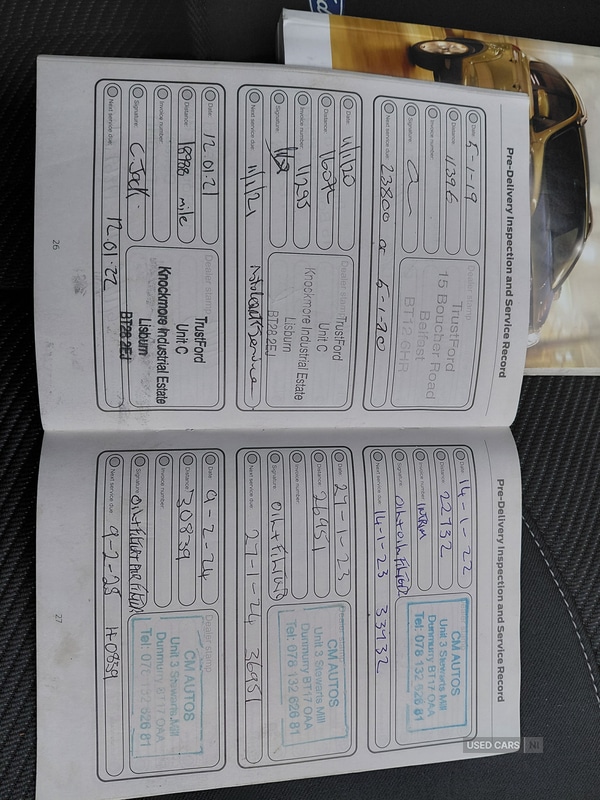 Pre-Delivery Inspection and Service Record
Date: 5-1-19
Distance: 11396
Invoice number:
Signature:
Next service due: 23800 or 5-1-20
Dealer stamp
TrustFord
15 Boucher Road
Belfast
BT12 6HR
Date: 11/1/20
Distance:
Invoice number: 11295
Signature:
Next service due: 11/1/21
Dealer stamp
TrustFord
Unit C
Knockmore Industrial Estate
Lisburn
BT28 2EJ
Date: 12.01.21
Distance: 18988 mile
Invoice number:
Signature: C. Jack.
Next service due: 12.01.22
Dealer stamp
TrustFord
Unit C
Knockmore Industrial Estate
Lisburn
BT28 2EJ
26
Pre-Delivery Inspection and Service Record
Date: 14-1-22
Distance: 22732
Invoice number:
Signature: OIL + OIL FILTER
Next service due: 14-1-23 33932
CM AUTOS
Unit 3 Stewarts Mill
Dunmurry BT17 OAA
Tel: 078 132 626 81
Date: 27-1-23
Distance: 26951
Invoice number:
Signature: OIL + FILTER
Next service due: 27-1-24 36951
Dealer stamp
CM AUTOS
Unit 3 Stewarts Mill
Dunmurry BT17 OAA
Tel: 078 132 626 81
Date: 9-2-24
Distance: 30839
Invoice number:
Signature: OIL + FILTER AIR FILTER
Next service due: 9-2-25 40839
Dealer stamp
CM AUTOS
Unit 3 Stewarts Mill
Dunmurry BT17 OAA
Tel: 078 132 626 81
27
USED CARS NI